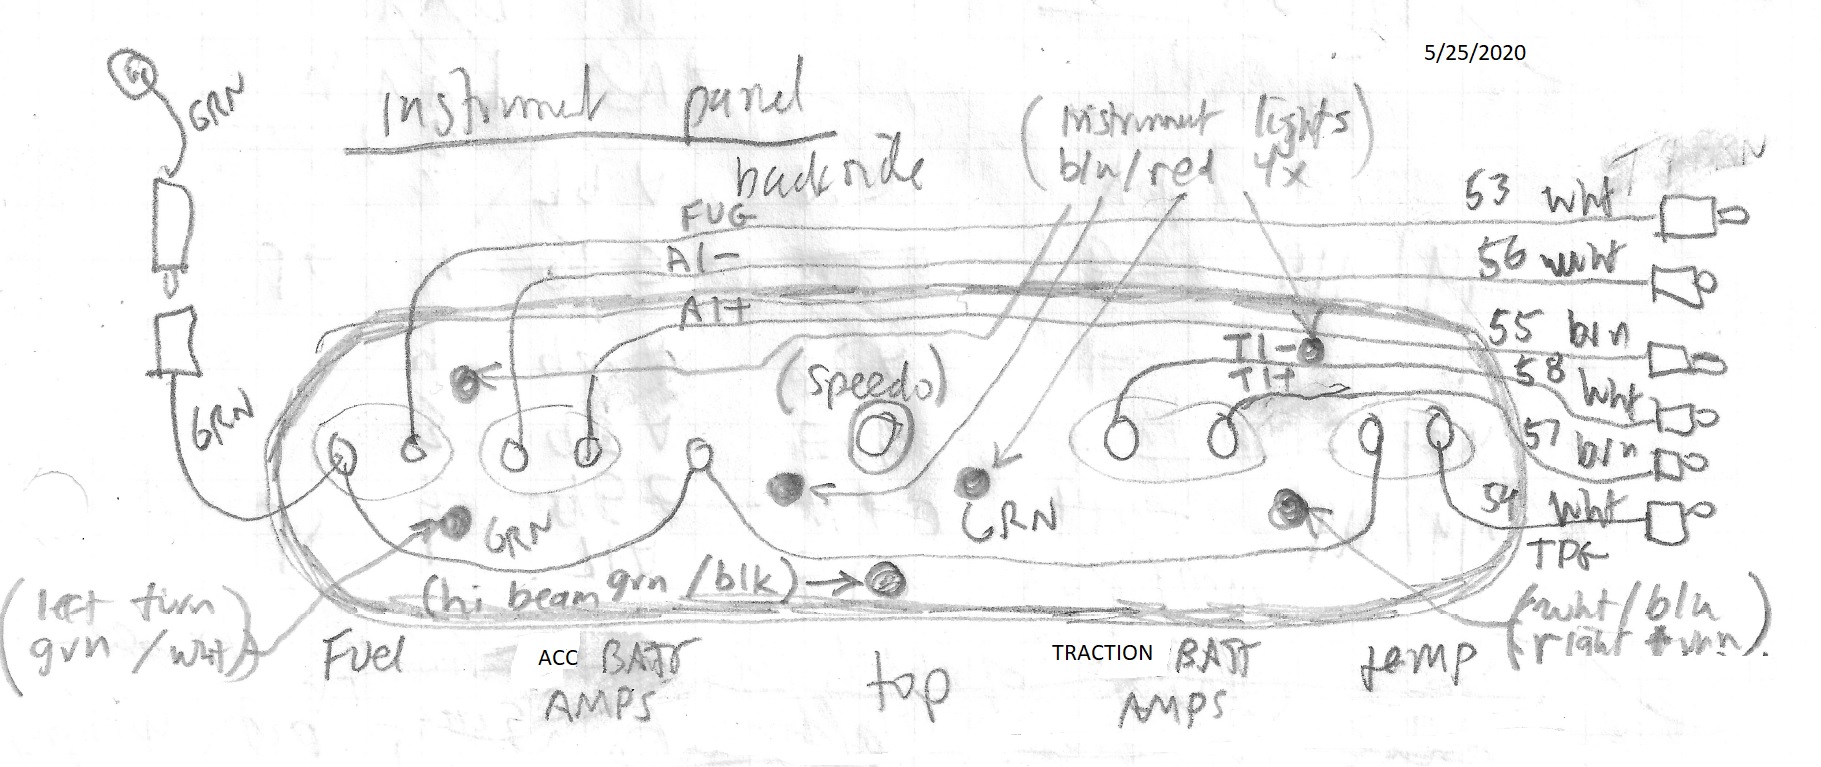 5/25/2020
GRN
instrument panel
backside
(instrument lights
blu/red 4x)
FUG
A1-
A1+
53 wht
56 wht
55 blu
58 wht
57 blu
54 wht
TPG
T1-
T1+
(speedo)
GRN
GRN
GRN
(hi beam grn/blk)
(left turn
grn/wht)
(wht/blu
right turn)
Fuel
ACC BATT
AMPS
top
TRACTION BATT
AMPS
temp